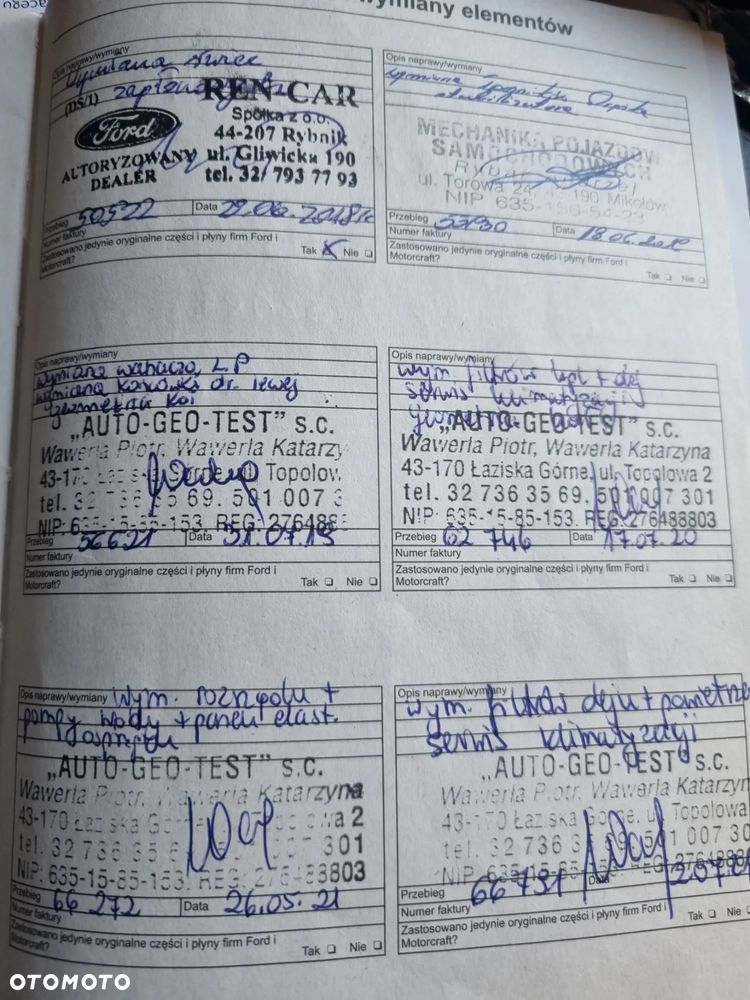 wymiany elementów
Opis naprawy/wymiany
Wymiana świec
(DS/1) zapłonowych
REN-CAR
Spółka z o.o.
Ford
44-207 Rybnik
AUTORYZOWANY
DEALER
ul. Gliwicka 190
tel. 32/ 793 77 93
Przebieg 50522 Data 29.06.2018r
Numer faktury
Zastosowano jedynie oryginalne części i płyny firm Ford i
Motorcraft? Tak Nie
Opis naprawy/wymiany
wymiana
stabilizatora
MECHANIKA POJAZDÓW
SAMOCHODOWYCH
ul. Torowa 24, 43-190 Mikołów
NIP 635-
Przebieg Data 18.06.
Numer faktury
Zastosowano jedynie oryginalne części i płyny firm Ford i
Motorcraft? Tak Nie
Opis naprawy/wymiany
Wymiana wahacza L P
wymiana końcówki dr. lewej
geometria kół
„AUTO-GEO-TEST" s.c.
Wawerla Piotr, Wawerla Katarzy
43-17 Topolow
tel. 32 736 35 69. 501 007 3
NIP: 635-15-85-153. REG. 2764888
Przebieg 56621 Data 31.07.19
Numer faktury
Zastosowano jedynie oryginalne części i płyny firm Ford i
Motorcraft? Tak Nie
Opis naprawy/wymiany
wym. filtrów kpl + olej
serwis klimatyzacji
„AUTO-GEO-TEST" s.c.
Wawerla Piotr, Wawerla Katarzyna
43-170 Łaziska Górne, ul. Topolowa 2
tel. 32 736 35 69. 501 007 301
NIP: 635-15-85-153. REG. 276488803
Przebieg 62 746 Data 17.07.20
Numer faktury
Zastosowano jedynie oryginalne części i płyny firm Ford i
Motorcraft? Tak Nie
Opis naprawy/wymiany Wym. rozrządu +
pompy wody + paska elast.
osprzętu
„AUTO-GEO-TEST" s.c.
Wawerla Piotr, Wawerla Katarzyna
43-170 Łaziska 2
tel. 32 736 35 6 301
NIP: 635-15-85-153. REG. 276488803
Przebieg 66 272 Data 26.05.21
Numer faktury
Zastosowano jedynie oryginalne części i płyny firm Ford i
Motorcraft? Tak Nie
Opis naprawy/wymiany
wym. filtrów oleju + powietrza
serwis klimatyzacji
„AUTO-GEO-TEST" s.c.
Wawerla Piotr, Wawerla Katarzyn
43-170 Łaziska Górne, ul Topolowa
tel. 32 736 3 501 007 30
NIP: 635-15-85-153. REG.
Przebieg 66 791 Data
Numer faktury
Zastosowano jedynie oryginalne części i płyny firm Ford i
Motorcraft? Tak Nie
OTOMOTO